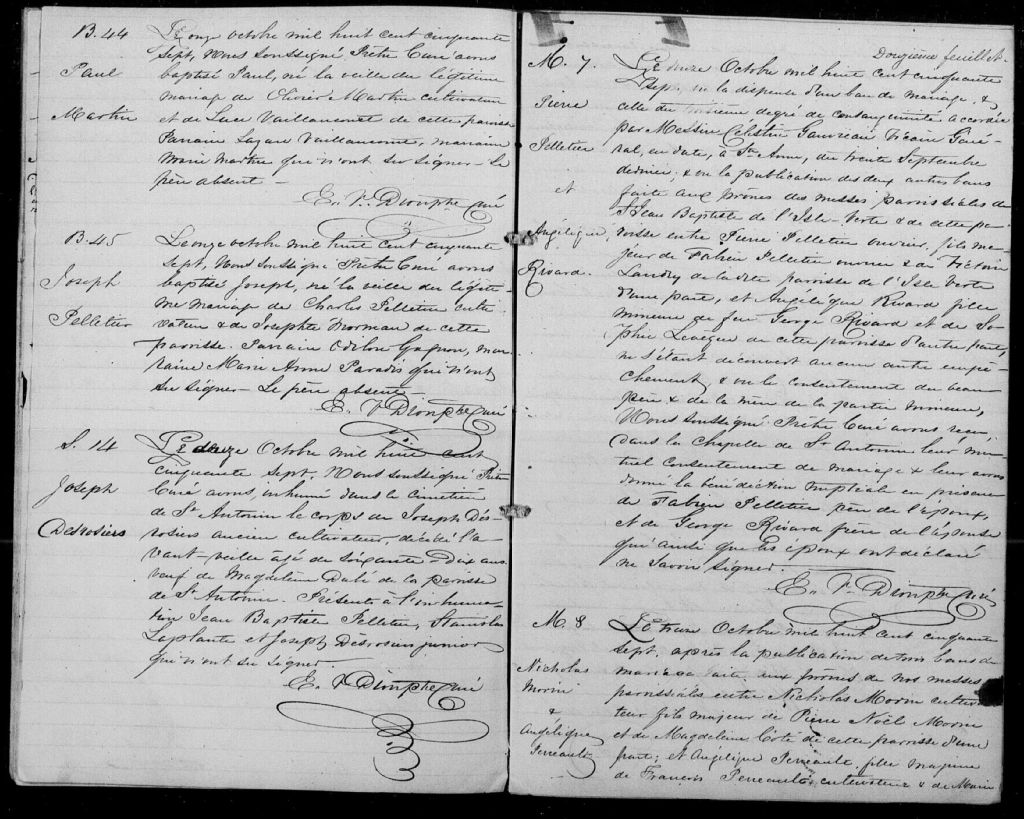 B. 44
Paul
Martin
Le onze octobre mil huit cent cinquante
sept, Nous soussigné Prêtre Curé avons
baptisé Paul, né la veille du légitime
mariage de Olivier Martin cultivateur
et de Luce Vaillancourt de cette paroisse
Parrain Lazare Vaillancourt, marraine
Marie Martin qui n'ont su signer - Le
père absent -
E. V. Dionptre curé
B. 45
Joseph
Pelletier
Le onze octobre mil huit cent cinquante
sept, Nous soussigné Prêtre Curé avons
baptisé Joseph, né la veille du légiti-
me mariage de Charles Pelletier culti-
vateur & de Josephte Morneau de cette
paroisse. Parrain Odilon Gagnon, mar-
raine Marie Anne Paradis qui n'ont
su signer - Le père absent -
E. V Dionptre curé
S. 14
Joseph
Desrosiers
Le douze Octobre mil huit cent
cinquante sept, Nous soussigné Prêtre
Curé avons inhumé dans le cimetière
de St Antonin le corps de Joseph Dés-
rosiers ancien cultivateur, décédé l'a-
vant-veille agé de soixante-Dix ans
veuf de Magdeleine Dubé de la paroisse
de St Antonin. Présents à l'inhuma-
tion Jean Baptiste Pelletier, Stanislas
Laplante et Joseph Désrosiers junior
qui n'ont su signer.
E. V Dionptre curé
Douzième feuillet.
M. 7.
Pierre
Pelletier
et
Angélique
Rivard.
Le douze Octobre mil huit cent cinquante
sept, vu la dispense d'un ban de mariage, &
celle du troisième degré de consanguinité accordée
par Messire Célestin Gauvreau Vicaire Géné-
ral, en date, à Ste Anne, du trente Septembre
dernier, & vu la publication des deux autres bans
faite aux prônes des messes paroissiales de
St Jean Baptiste de l'Isle-Verte & de cette pa-
roisse entre Pierre Pelletier ouvrier, fils ma-
jeur de Fabien Pelletier ouvrier & de Victoire
Landry de la dite paroisse de l'Isle Verte
d'une part, et Angélique Rivard fille
mineure de feu George Rivard et de So-
phie Levecque de cette paroisse d'autre part,
ne s'étant découvert aucun autre empê-
chement, & vu le consentement du beau
père & de la mère de la partie mineure,
Nous soussigné Prêtre Curé avons reçu,
dans la Chapelle de St Antonin leur mu-
tuel consentement de mariage & leur avons
donné la bénédiction nuptiale en présence
de Fabien Pelletier père de l'époux,
et de George Rivard frère de l'épouse
qui ainsi que les époux ont déclaré
ne savoir signer.
E. V. Dionptre curé
M. 8
Nicholas
Morin
&
Angélique
Perreault
Le treize Octobre mil huit cent cinquante
sept, après la publication de trois bans de
mariage faite aux prônes de nos messes
paroissiales entre Nicholas Morin cultiva-
teur fils majeur de Pierre Noël Morin
et de Magdeleine Côté de cette paroisse d'une
part; et Angélique Perreault, fille majeure
de François Perreault, cultivateur & de Marie